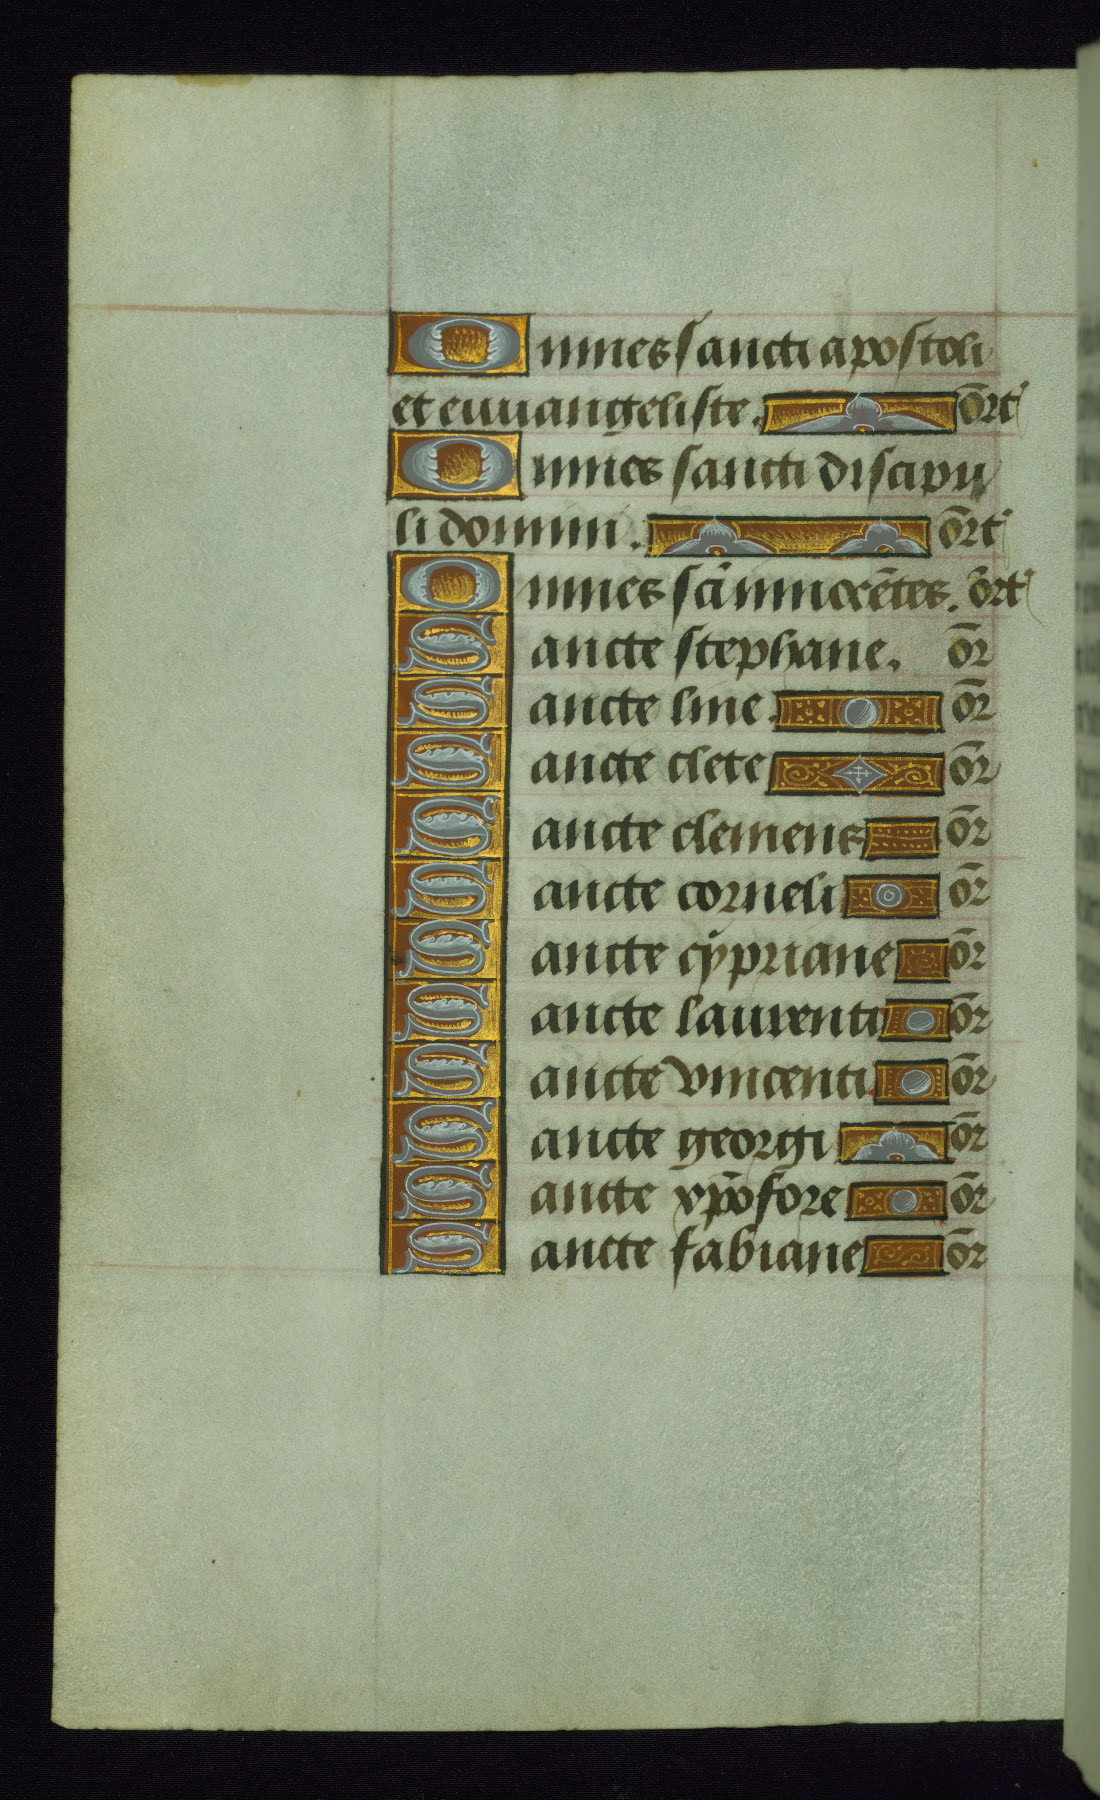 Omnes sancti apostoli
et euuangeliste. or̄t
Omnes sancti discipu
li domini. or̄t
Omnes sc̄i innocē̄tes. or̄t
Sancte stephane. or̄
Sancte line. or̄
Sancte clete or̄
Sancte clemens or̄
Sancte corneli or̄
Sancte cẏpriane or̄
Sancte laurenti or̄
Sancte vincenti or̄
Sancte georgi or̄
Sancte xp̄ofore or̄
Sancte fabiane or̄